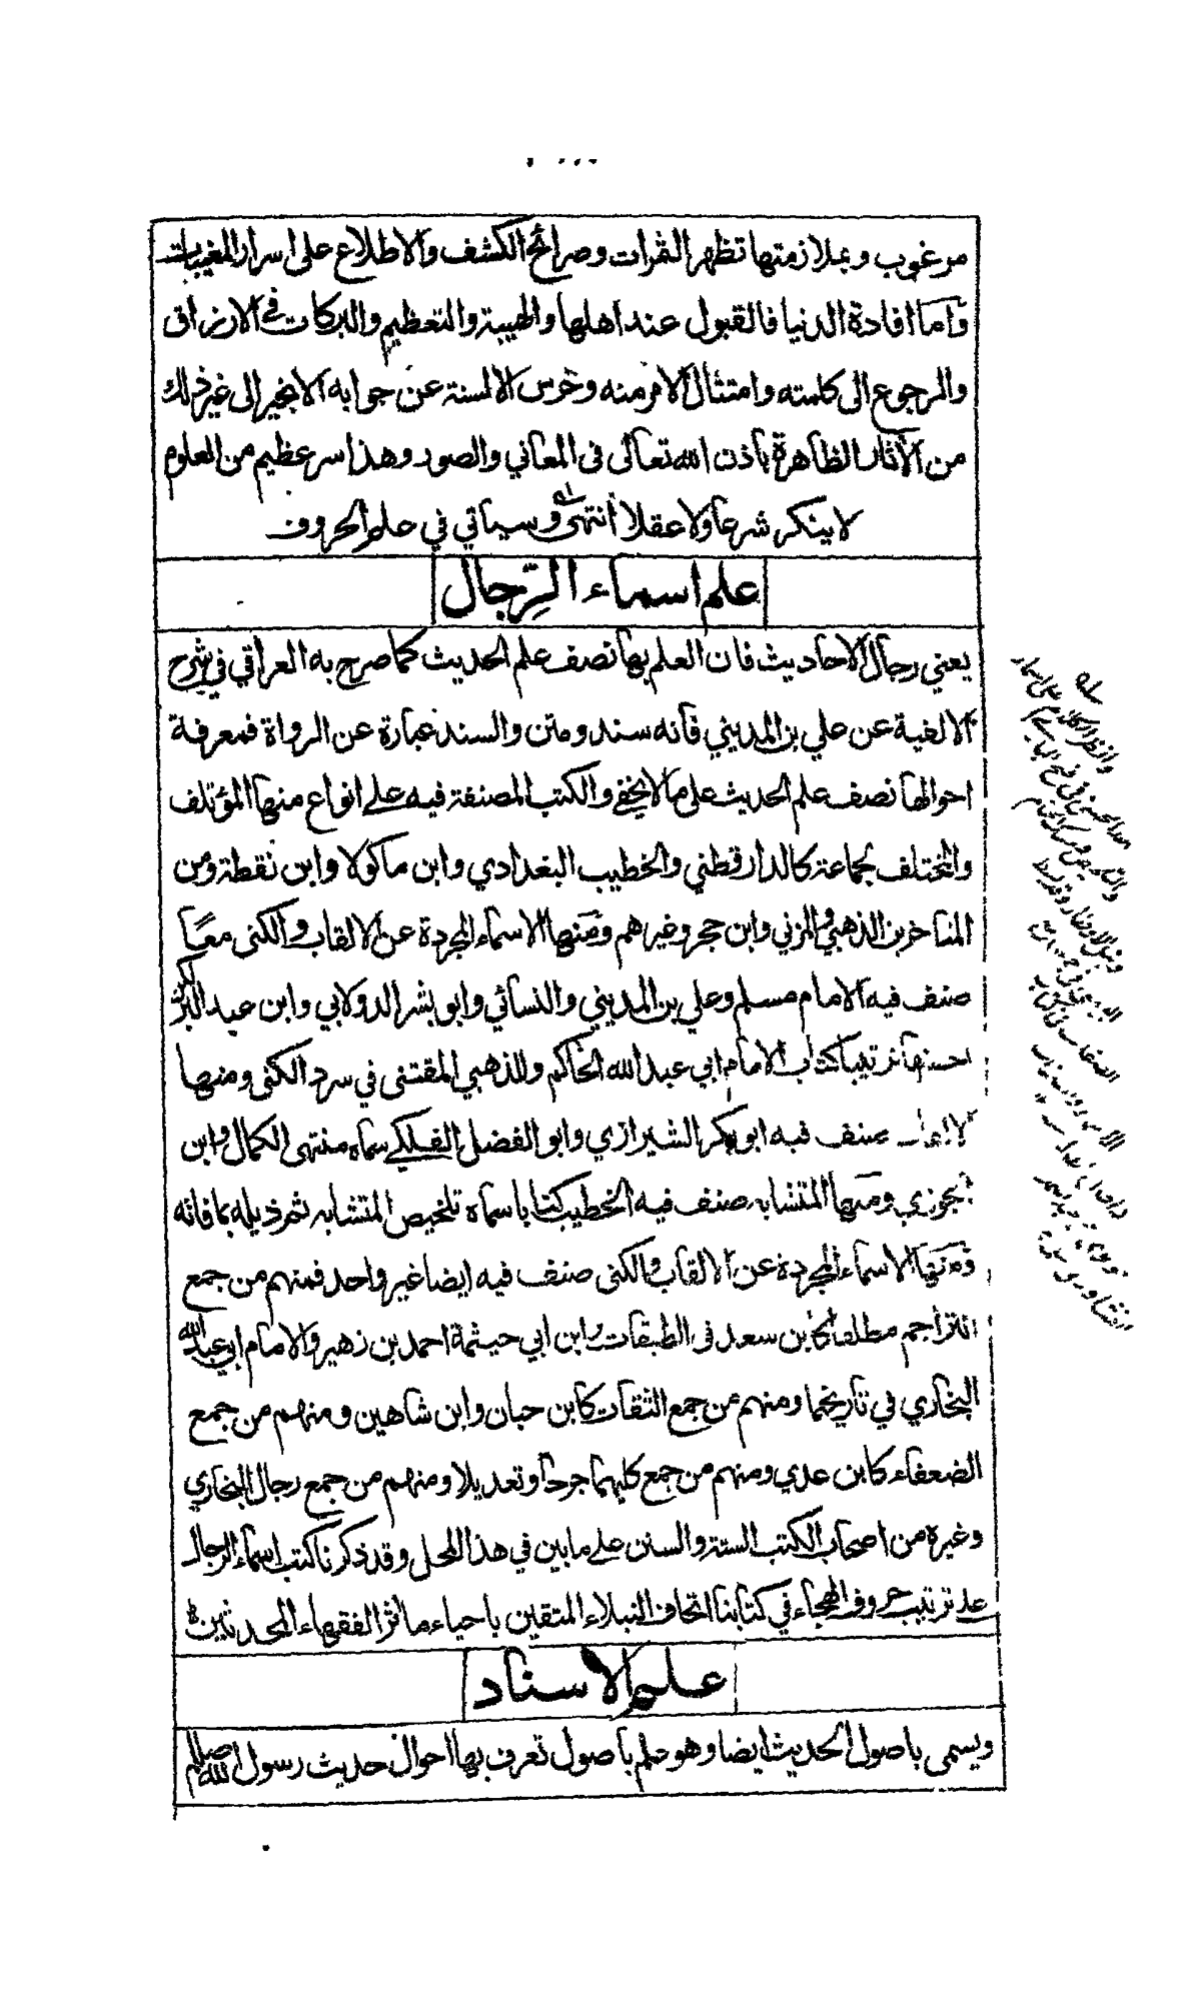 مرغوب وبملازمتها تظهر الثمرات وصرائح الكشف والاطلاع على اسرار المغيبات
وأما افادة الدنيا فالقبول عند اهلها والهيبة والتعظيم والبركات في الارزاق
والرجوع الى كلمته وامتثال الامر منه وخرس الالسنة عن جوابه الا بخير الى غير ذلك
من الآثار الظاهرة باذن الله تعالى في المعاني والصور وهذا سر عظيم من العلوم
لا ينكر شرعا ولا عقلا انتهى وسيأتي في علم الحروف
علم اسماء الرجال
يعني رجال الاحاديث فان العلم بها نصف علم الحديث كما صرح به العراقي في شرح
الالفية عن علي بن المديني فانه سند ومتن والسند عبارة عن الرواة فمعرفة
احوالها نصف علم الحديث على ما لا يخفى والكتب المصنفة فيه على انواع منها المؤتلف
والمختلف لجماعة كالدارقطني والخطيب البغدادي وابن ماكولا وابن نقطة ومن
المتاخرين الذهبي والمزني وابن حجر وغيرهم ومنها الاسماء المجردة عن الالقاب والكنى معا
صنف فيه الامام مسلم وعلي بن المديني والنسائي وابو بشر الدولابي وابن عبد البر لكن
احسنها ترتيبا كتاب الامام ابي عبد الله الحاكم وللذهبي المقتنى في سرد الكنى ومنها
الالقاب صنف فيه ابو بكر الشيرازي وابو الفضل الفلكي سماه منتهى الكمال وابن
الجوزي ومنها المتشابه صنف فيه الخطيب كتابا سماه تلخيص المتشابه ثم ذيله بما فاته
ومنها الاسماء المجردة عن الالقاب والكنى صنف فيه ايضا غير واحد فمنهم من جمع
التراجم مطلقا كابن سعد في الطبقات وابن ابي حيثمة احمد بن زهير والامام ابي عبد الله
البخاري في تاريخهما ومنهم من جمع الثقات كابن حبان وابن شاهين ومنهم من جمع
الضعفاء كابن عدي ومنهم من جمع كليهما جرحا وتعديلا ومنهم من جمع رجال البخاري
وغيره من اصحاب الكتب الستة والسنن على ما بين في هذا المحل وقد ذكرنا كتب اسماء الرجال
على ترتيب حروف الهجاء في كتابنا اتحاف النبلاء المتقين باحياء ماثر الفقهاء المحدثين
علم الاسناد
ويسمى باصول الحديث ايضا وهو علم باصول تعرف بها احوال حديث رسول الله صلعم